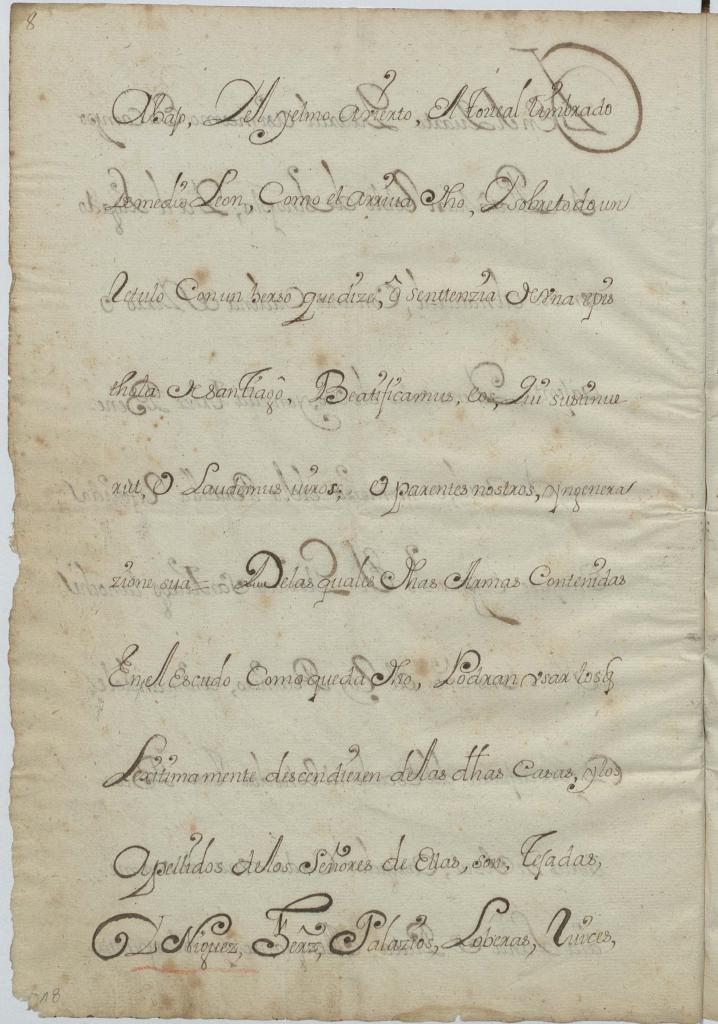 8
Abap, Del yelmo avierto, El toucal timbrado
Lo medio Leon, Como el arriua dho, Y sobre todo un
Retulo Con un berso que dize, q̃ senttenzia de vna epis
thola de santiago, Beatificamus, eos, Qui sustinue
rut, O Laudemus uiros; O parentes nostros, yn genera
zione sua = De las quales dhas Armas Contenidas
En el Escudo Como queda dho, Podran vsar los q̃
Lexitimamente descendieren de las dhas Casas, y los
Apellidos de los Señores de Ellas, son, Tejadas,
Yñiguez, Ferz, Palazios, Loberas,
18